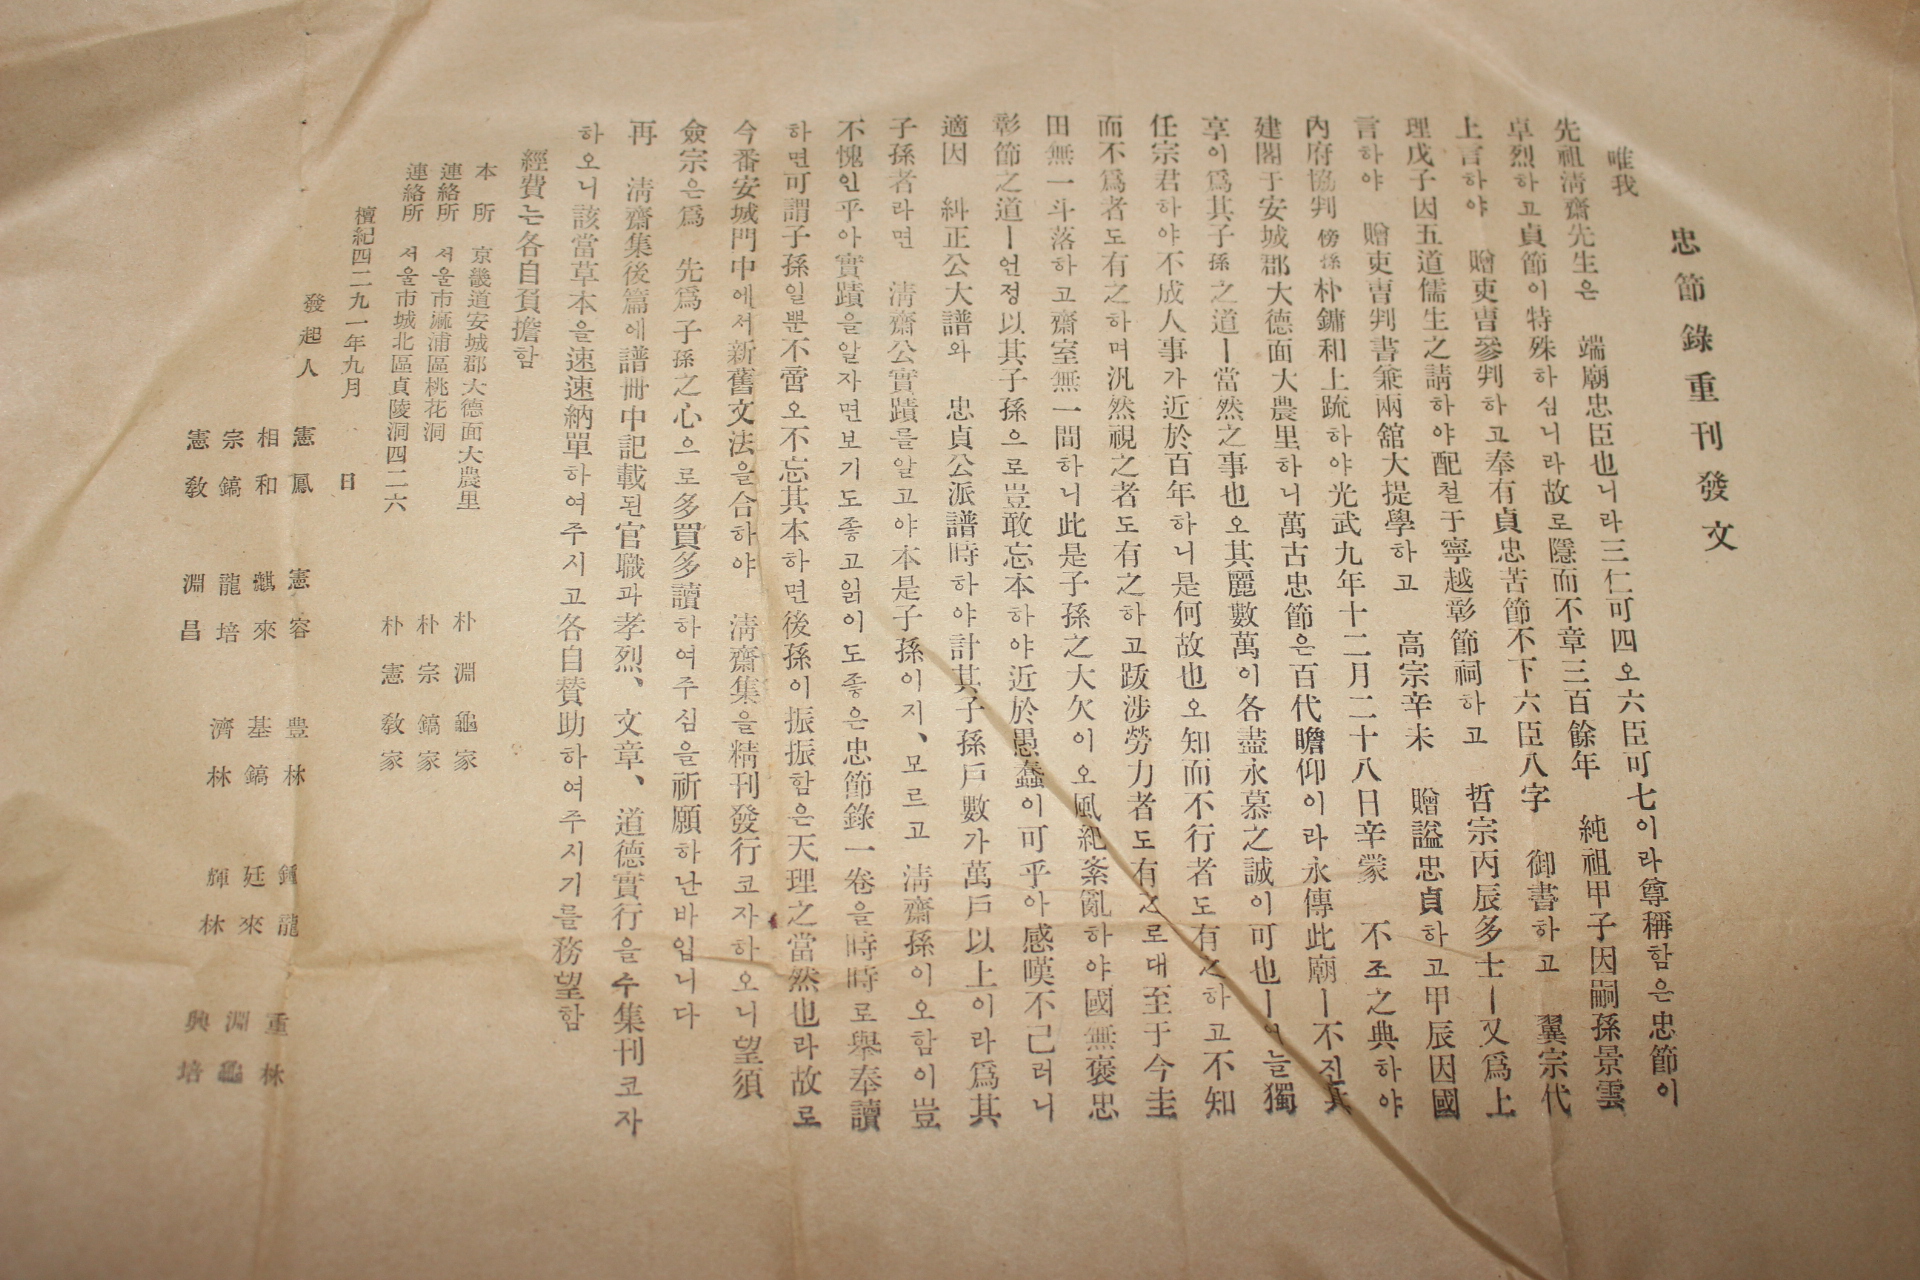 忠節錄重刊發文
唯我
先祖淸齋先生은 端廟忠臣也니라三仁可四오六臣可七이라尊稱함은忠節이
卓烈하고貞節이特殊하심니라故로隱而不章三百餘年 純祖甲子因嗣孫景雲
上言하야 贈吏曺參判하고奉有貞忠苦節不下六臣八字 御書하고 翼宗代
理戊子因五道儒生之請하야配철于寧越彰節祠하고 哲宗丙辰多士ㅣ又爲上
言하야 贈吏曺判書兼兩舘大提學하고 高宗辛未 贈謚忠貞하고甲辰因國
內府協判傍孫朴鏞和上疏하야光武九年十二月二十八日辛蒙 不조之典하야
建閣于安城郡大德面大農里하니萬古忠節은百代瞻仰이라永傳此廟ㅣ不진其
享이爲其子孫之道ㅣ當然之事也오其麗數萬이各盡永慕之誠이可也ㅣ여늘獨
任宗君하야不成人事가近於百年하니是何故也오知而不行者도有之하고不知
而不爲者도有之하며汎然視之者도有之하고跋涉勞力者도有之로대至于今圭
田無一斗落하고齋室無一間하니此是子孫之大欠이오風紀紊亂하야國無褒忠
彰節之道ㅣ언정以其子孫으로豈敢忘本하야近於愚蠢이可乎아感嘆不己러니
適因 糾正公大譜와 忠貞公派譜時하야計其子孫戶數가萬戶以上이라爲其
子孫者라면 淸齋公實蹟를알고야本是子孫이지、모르고 淸齋孫이오함이豈
不愧인乎아實蹟을알자면보기도좋고읽이도좋은忠節錄一卷을時時로擧奉讀
하면可謂子孫일뿐不啻오不忘其本하면後孫이振振함은天理之當然也라故로
今番安城門中에서新舊文法을合하야 淸齋集을精刊發行코자하오니望須
僉宗은爲 先爲子孫之心으로多買多讀하여주심을祈願하난바입니다
再 淸齋集後篇에譜冊中記載된官職과孝烈、文章、道德實行을수集刊코자
하오니該當草本을速速納單하여주시고各自賛助하여주시기를務望함
經費는各自負擔함
本所 京畿道安城郡大德面大農里 朴淵龜家
連絡所 서울市麻浦區桃花洞 朴宗鎬家
連絡所 서울市城北區貞陵洞四二六 朴憲敎家
檀紀四二九一年九月 日
發起人 憲鳳 憲容 豊林 鍾龍 重林
相和 麒來 基鎬 廷來 淵龜
宗鎬 龍培 濟林 輝林 興培
憲敎 淵昌